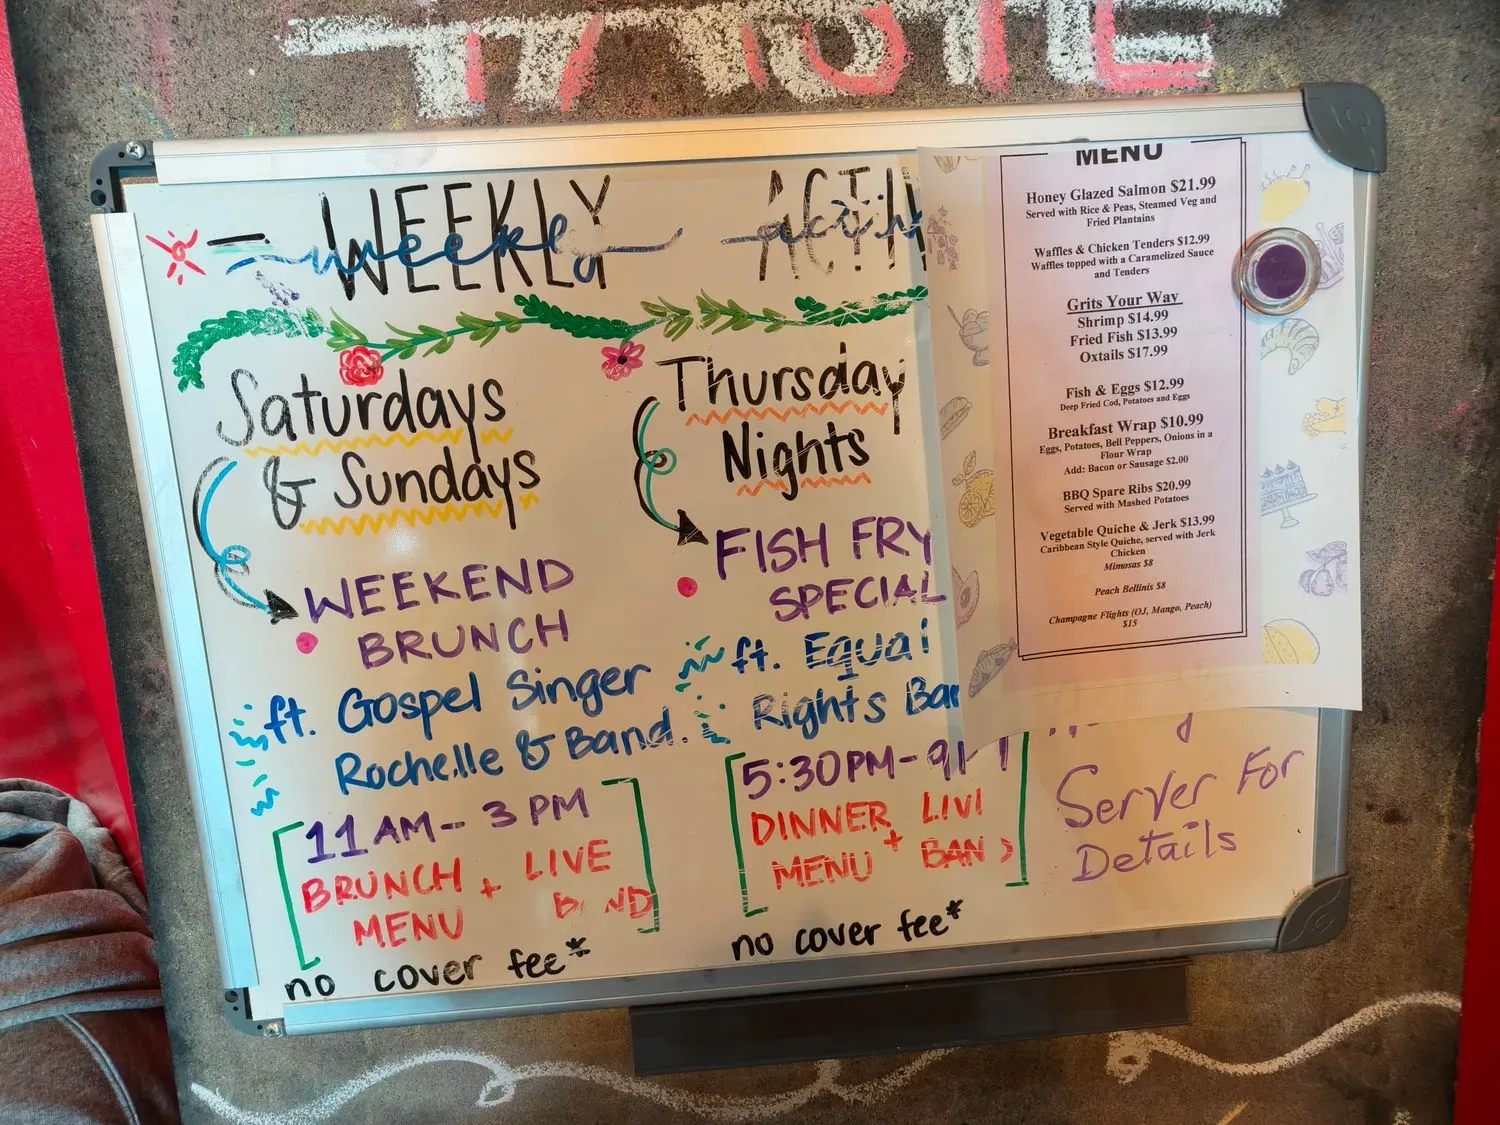 WEEKLY
weekly
Saturdays
& Sundays
WEEKEND
BRUNCH
ft. Gospel Singer
Rochelle & Band.
11 AM - 3 PM
BRUNCH + LIVE
MENU BAND
no cover fee*
Thursday
Nights
FISH FRY
SPECIAL
ft. Equal
Rights Ban
5:30 PM - 9
DINNER + LIV
MENU BAN
no cover fee*
Server For
Details
MENU
Honey Glazed Salmon $21.99
Served with Rice & Peas, Steamed Veg and
Fried Plantains
Waffles & Chicken Tenders $12.99
Waffles topped with a Caramelized Sauce
and Tenders
Grits Your Way
Shrimp $14.99
Fried Fish $13.99
Oxtails $17.99
Fish & Eggs $12.99
Deep Fried Cod, Potatoes and Eggs
Breakfast Wrap $10.99
Eggs, Potatoes, Bell Peppers, Onions in a
Flour Wrap
Add: Bacon or Sausage $2.00
BBQ Spare Ribs $20.99
Served with Mashed Potatoes
Vegetable Quiche & Jerk $13.99
Caribbean Style Quiche, served with Jerk
Chicken
Mimosas $8
Peach Bellinis $8
Champagne Flights (OJ, Mango, Peach)
$15